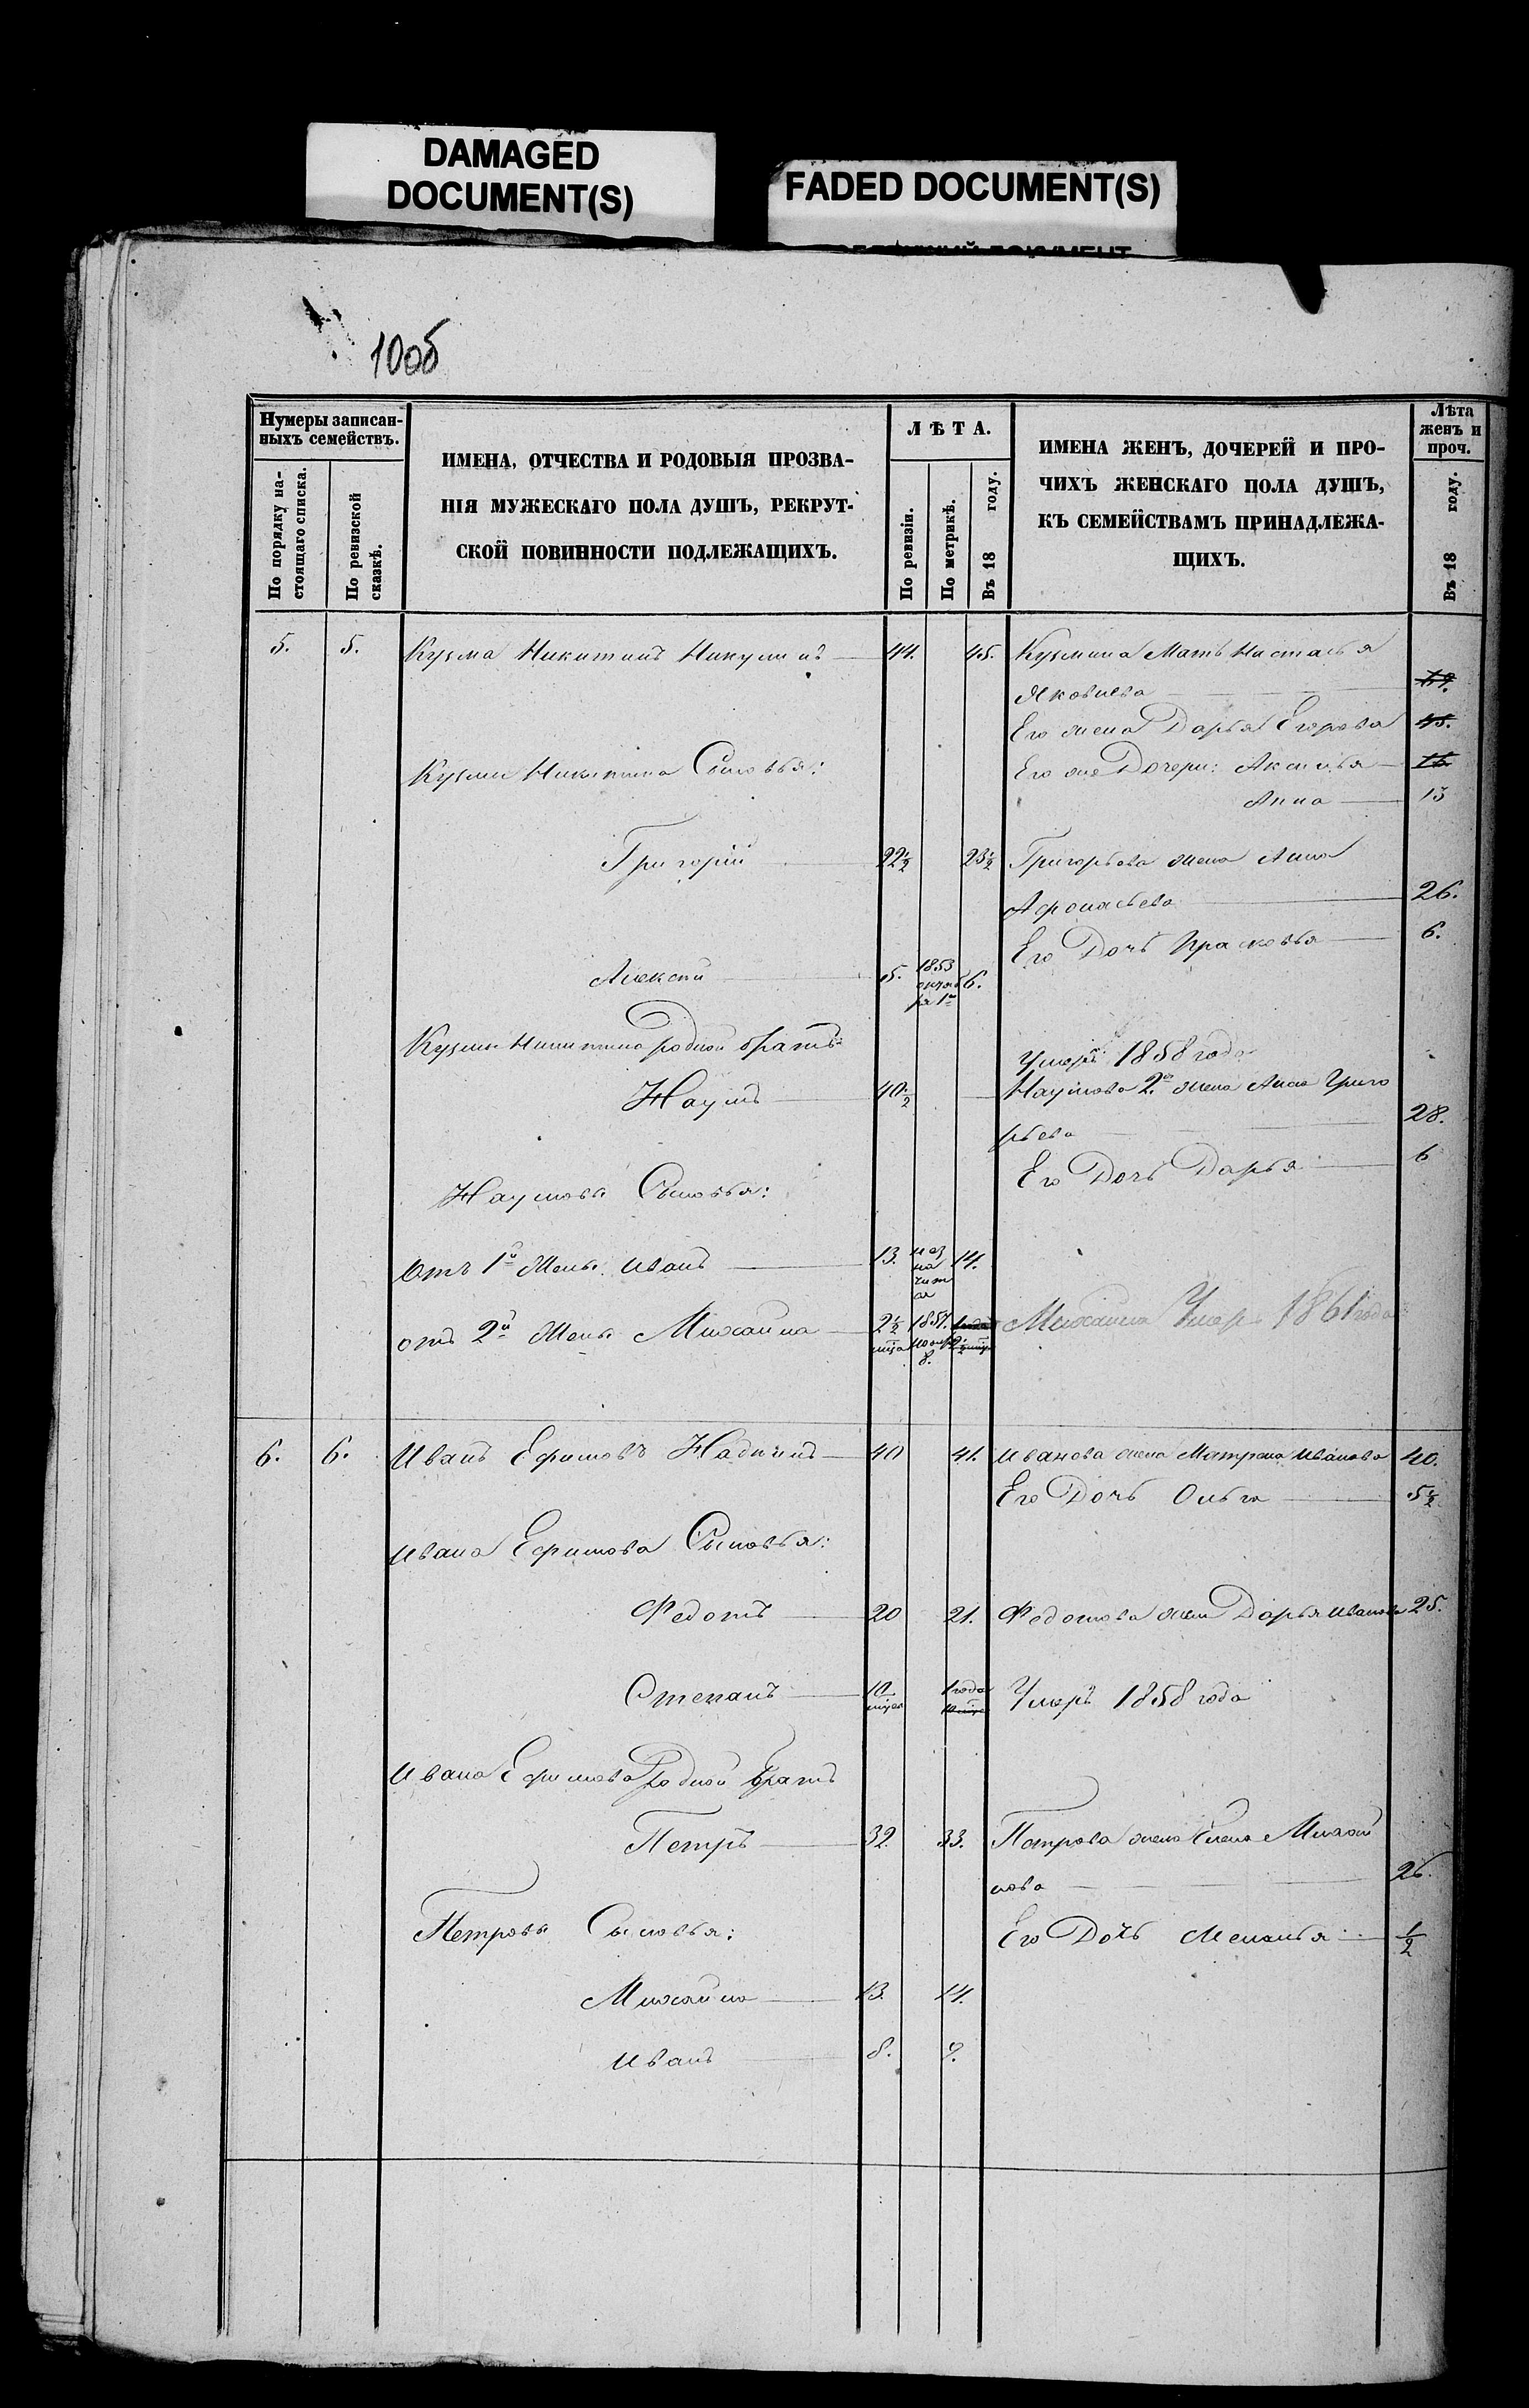 DAMAGED
DOCUMENT(S)
FADED DOCUMENT(S)
10об
Нумеры записан-
ныхъ семействъ.
По порядку на-
стоящаго списка.
По ревизской
сказкѣ.
ИМЕНА, ОТЧЕСТВА И РОДОВЫЯ ПРОЗВА-
НІЯ МУЖЕСКАГО ПОЛА ДУШЪ, РЕКРУТ-
СКОЙ ПОВИННОСТИ ПОДЛЕЖАЩИХЪ.
ЛѢТА.
По ревизіи.
По метрикѣ.
Въ 18 году.
ИМЕНА ЖЕНЪ, ДОЧЕРЕЙ И ПРО-
ЧИХЪ ЖЕНСКАГО ПОЛА ДУШЪ,
КЪ СЕМЕЙСТВАМЪ ПРИНАДЛЕЖА-
ЩИХЪ.
Лѣта
женъ и
проч.
Въ 18 году.
5. 5. Кузма Никитинъ Никулинъ 44. 45. Кузмина Мать Настасья
Яковлева
Его жена Дарья Егорова 45.
Кузмы Никитина Сыновья: Его же Дочери: Аксинья 16.
Анна 13
Григорій 22½ 23½ Григорьева жена Анна
Афонасьева 26.
Его Дочь Прасковья 6.
Алексѣй 5. 1853 октяб ря 1го 6.
Кузмы Никитина родной братъ:
Умеръ 1858 года
Наумъ 40½ Наумова 2я жена Анна Григо
рьева 28.
Его Дочь Дарья 6
Наумовы Сыновья:
Отъ 1й Жены Иванъ 13. не значится 14.
отъ 2й Жены Михайла 2½ 1857. Михайла Умеръ 1861 года
6. 6. Иванъ Ефимовъ 40 41. Иванова жена Матрена Иванова 40.
Его Дочь Ольга 5½
Ивана Ефимова Сыновья:
Федотъ 20 21. Федотова жена Дарья Иванова 25.
Степанъ 10 1 года Умеръ 1858 года
Ивана Ефимова Родной братъ
Петръ 32. 33. Петрова жена Елена Михай
лова 26.
Петровы Сыновья: Его Дочь Меланья ½
Михайла 13. 14.
Иванъ 8. 9.